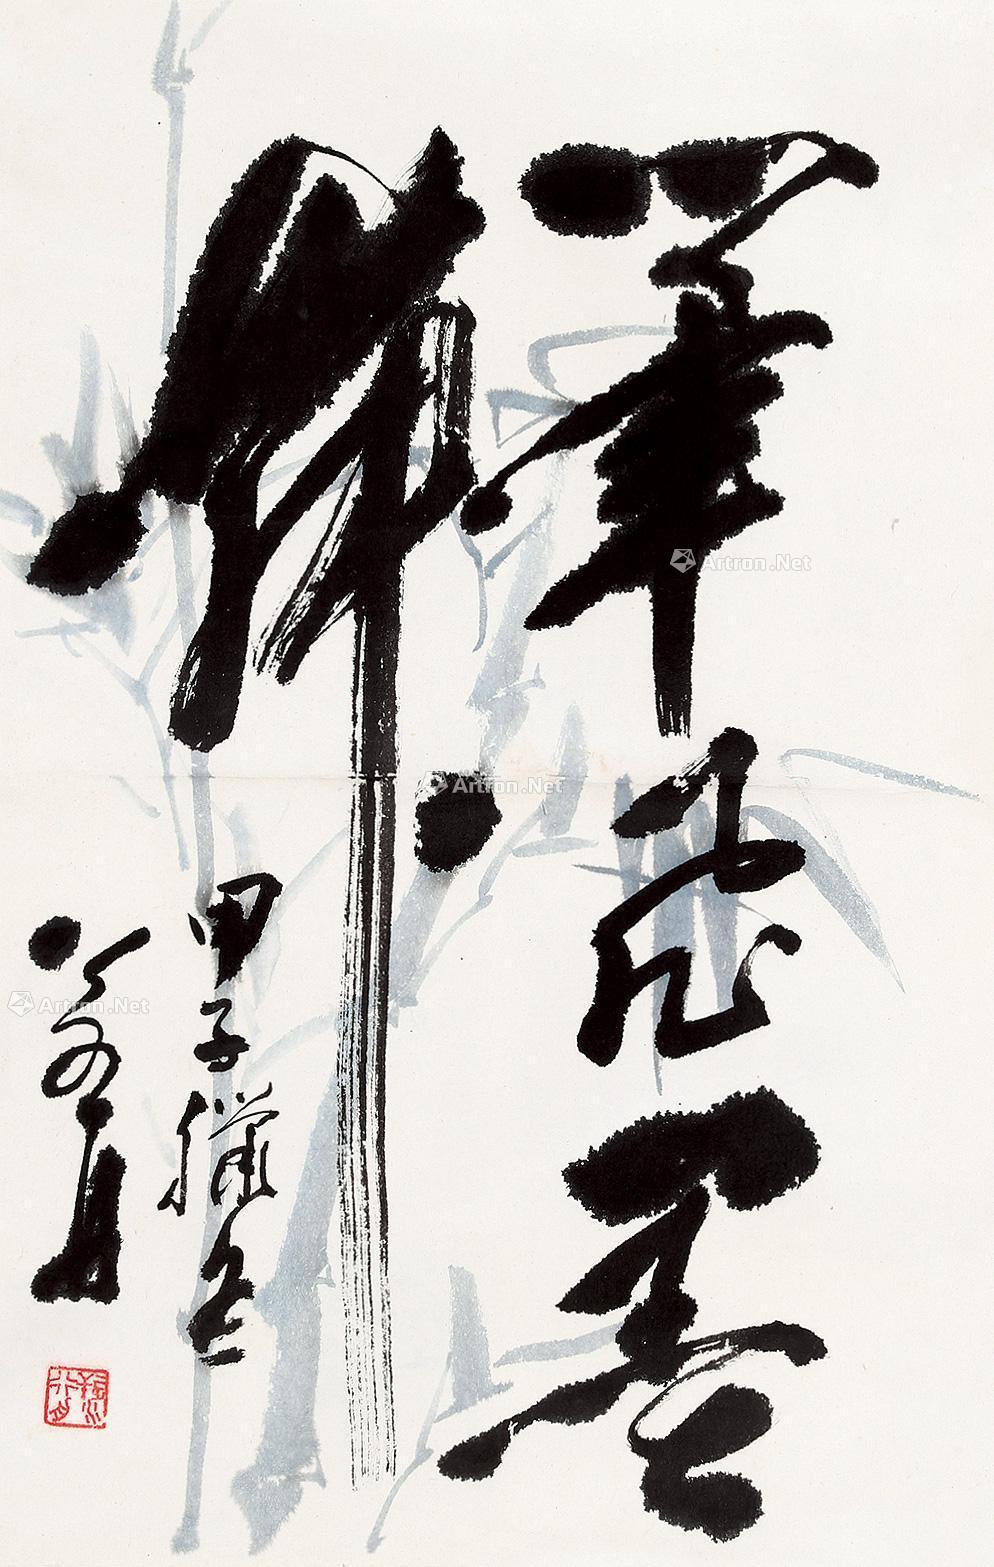 筆飛墨
舞
甲子臘冬
Artron.Net
Artron.Net
Artron.Net